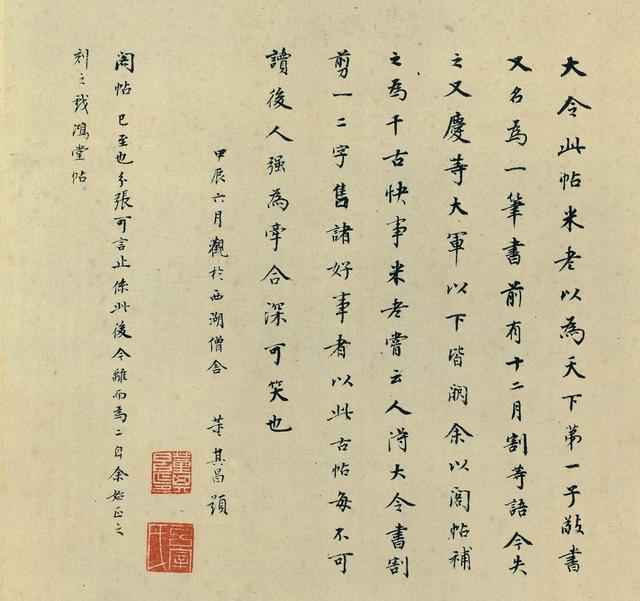 大令此帖米老以為天下第一子敬書
又名為一筆書前有十二月割等語今失
之又慶等大軍以下皆闕余以閣帖補
之為千古快事米老嘗云人得大令書割
剪一二字售諸好事者以此古帖每不可
讀後人强為牽合深可笑也
甲辰六月觀於西湖僧舍 董其昌題
閣帖巳至也分張可言止係此後今離而為二自余始正之
刻之戲鴻堂帖